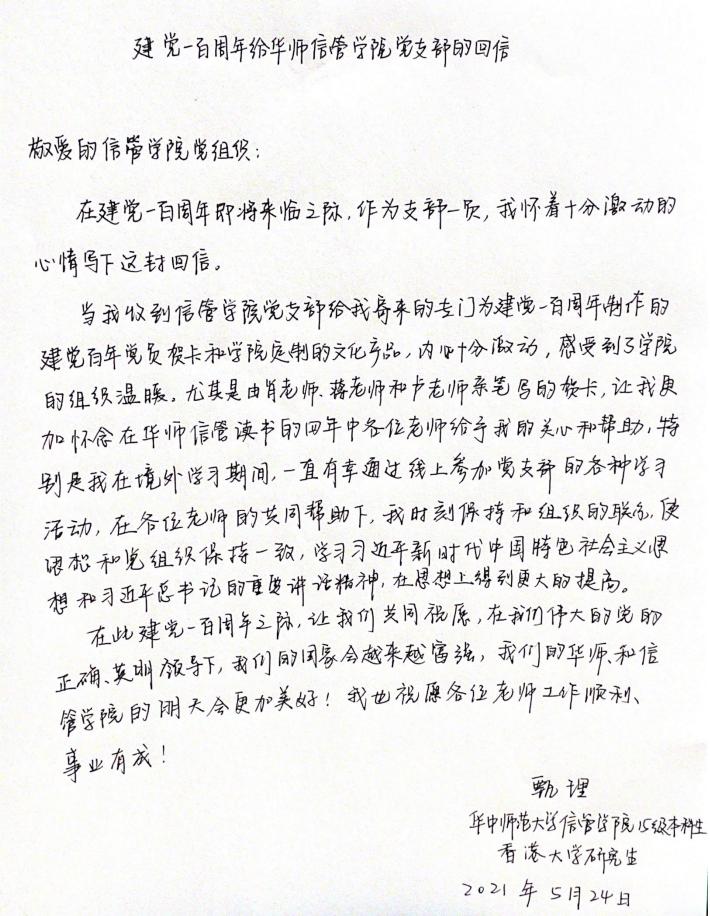 建党一百周年给华师信管学院党支部的回信
敬爱的信管学院党组织:
在建党一百周年即将来临之际,作为支部一员,我怀着十分激动的
心情写下这封回信。
当我收到信管学院党支部给我寄来的专门为建党一百周年制作的
建党百年党员贺卡和学院定制的文化产品,内心十分激动,感受到了学院
的组织温暖。尤其是由肖老师、蒋老师和卢老师亲笔写的贺卡,让我更
加怀念在华师信管读书的四年中各位老师给予我的关心和帮助,特
别是我在境外学习期间,一直有幸通过线上参加党支部的各种学习
活动,在各位老师的共同帮助下,我时刻保持和组织的联系,使
思想和党组织保持一致,学习习近平新时代中国特色社会主义思
想和习近平总书记的重要讲话精神,在思想上得到更大的提高。
在此建党一百周年之际,让我们共同祝愿,在我们伟大的党的
正确、英明领导下,我们的国家会越来越富强,我们的华师、和信
管学院的明天会更加美好!我也祝愿各位老师工作顺利、
事业有成!
甄理
华中师范大学信管学院15级本科生
香港大学研究生
2021年5月24日